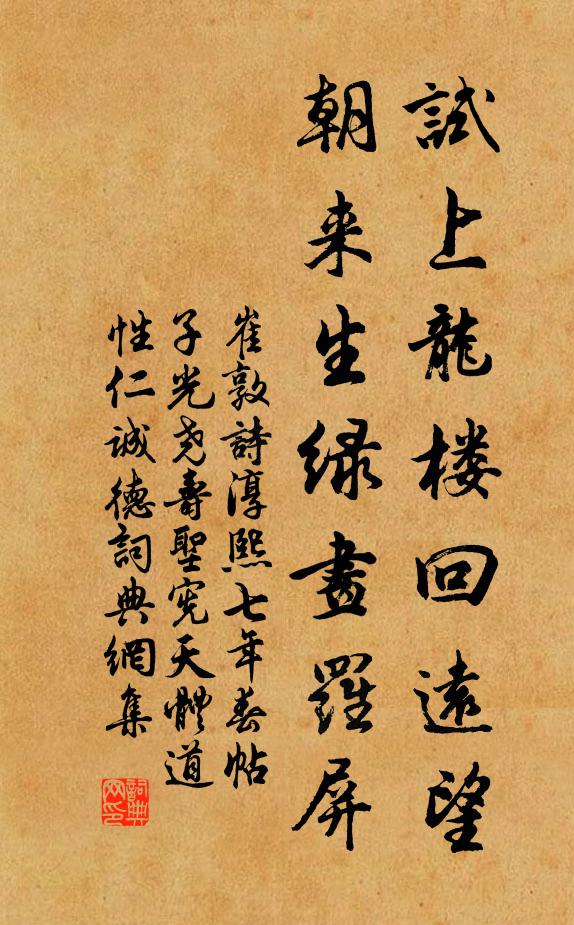 試上龍楼回遠望
朝来生緑畫羅屏
崔敦詩淳熙七年春帖
子光尧壽聖憲天體道
性仁誠德詞典網集
詞典网印